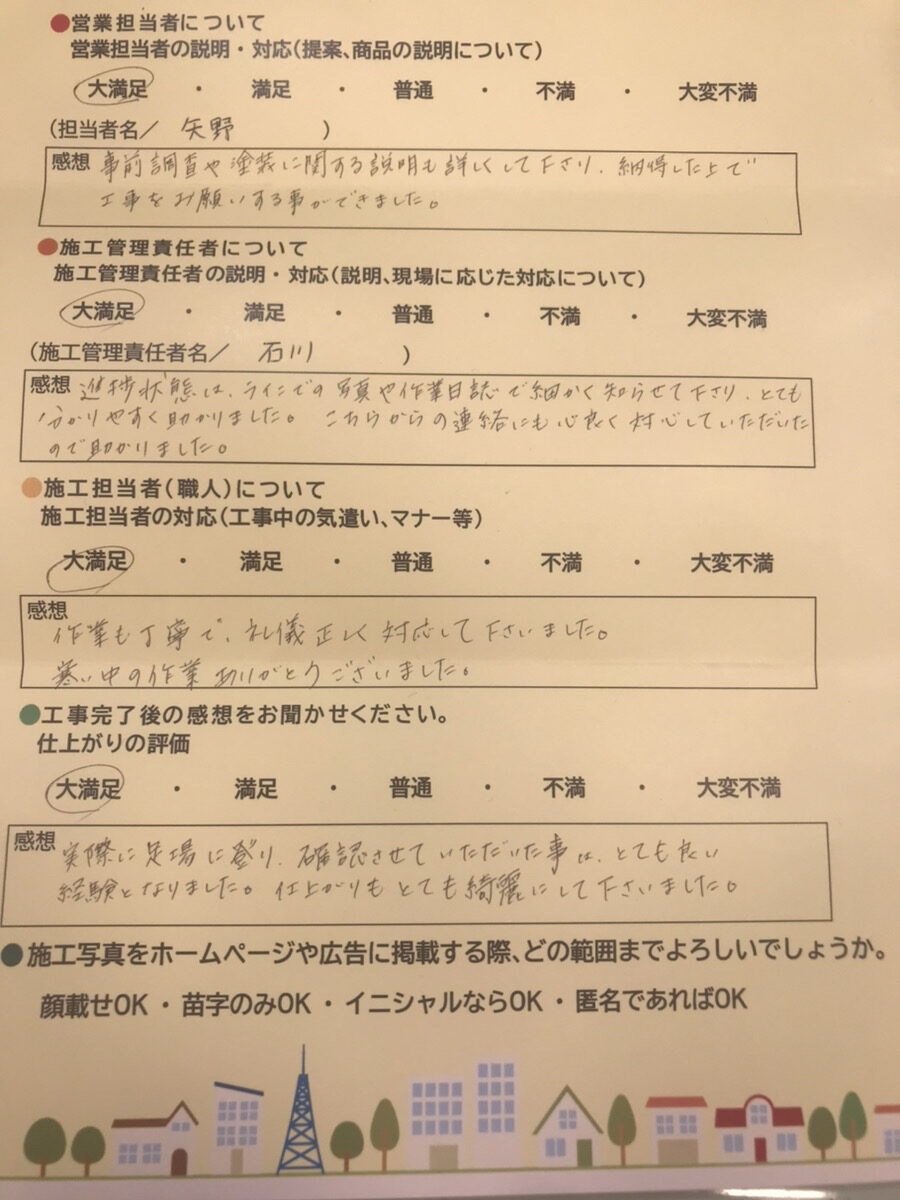 ●営業担当者について
営業担当者の説明・対応(提案、商品の説明について)
大満足 ・ 満足 ・ 普通 ・ 不満 ・ 大変不満
(担当者名／ 矢野 )
感想 事前調査や塗装に関する説明も詳しくして下さり、納得した上で
工事をお願いする事ができました。
●施工管理責任者について
施工管理責任者の説明・対応(説明、現場に応じた対応について)
大満足 ・ 満足 ・ 普通 ・ 不満 ・ 大変不満
(施工管理責任者名／ 石川 )
感想 進捗状態は、ラインでの写真や作業日誌で細かく知らせて下さり、とても
分かりやすく助かりました。 こちらからの連絡にも心良く対応していただいた
ので助かりました。
●施工担当者(職人)について
施工担当者の対応(工事中の気遣い、マナー等)
大満足 ・ 満足 ・ 普通 ・ 不満 ・ 大変不満
感想
作業も丁寧で、礼儀正しく対応して下さいました。
寒い中の作業ありがとうございました。
●工事完了後の感想をお聞かせください。
仕上がりの評価
大満足 ・ 満足 ・ 普通 ・ 不満 ・ 大変不満
感想 実際に足場に登り、確認させていただいた事は、とても良い
経験となりました。仕上がりもとても綺麗にして下さいました。
●施工写真をホームページや広告に掲載する際、どの範囲までよろしいでしょうか。
顔載せOK ・ 苗字のみOK ・ イニシャルならOK ・ 匿名であればOK